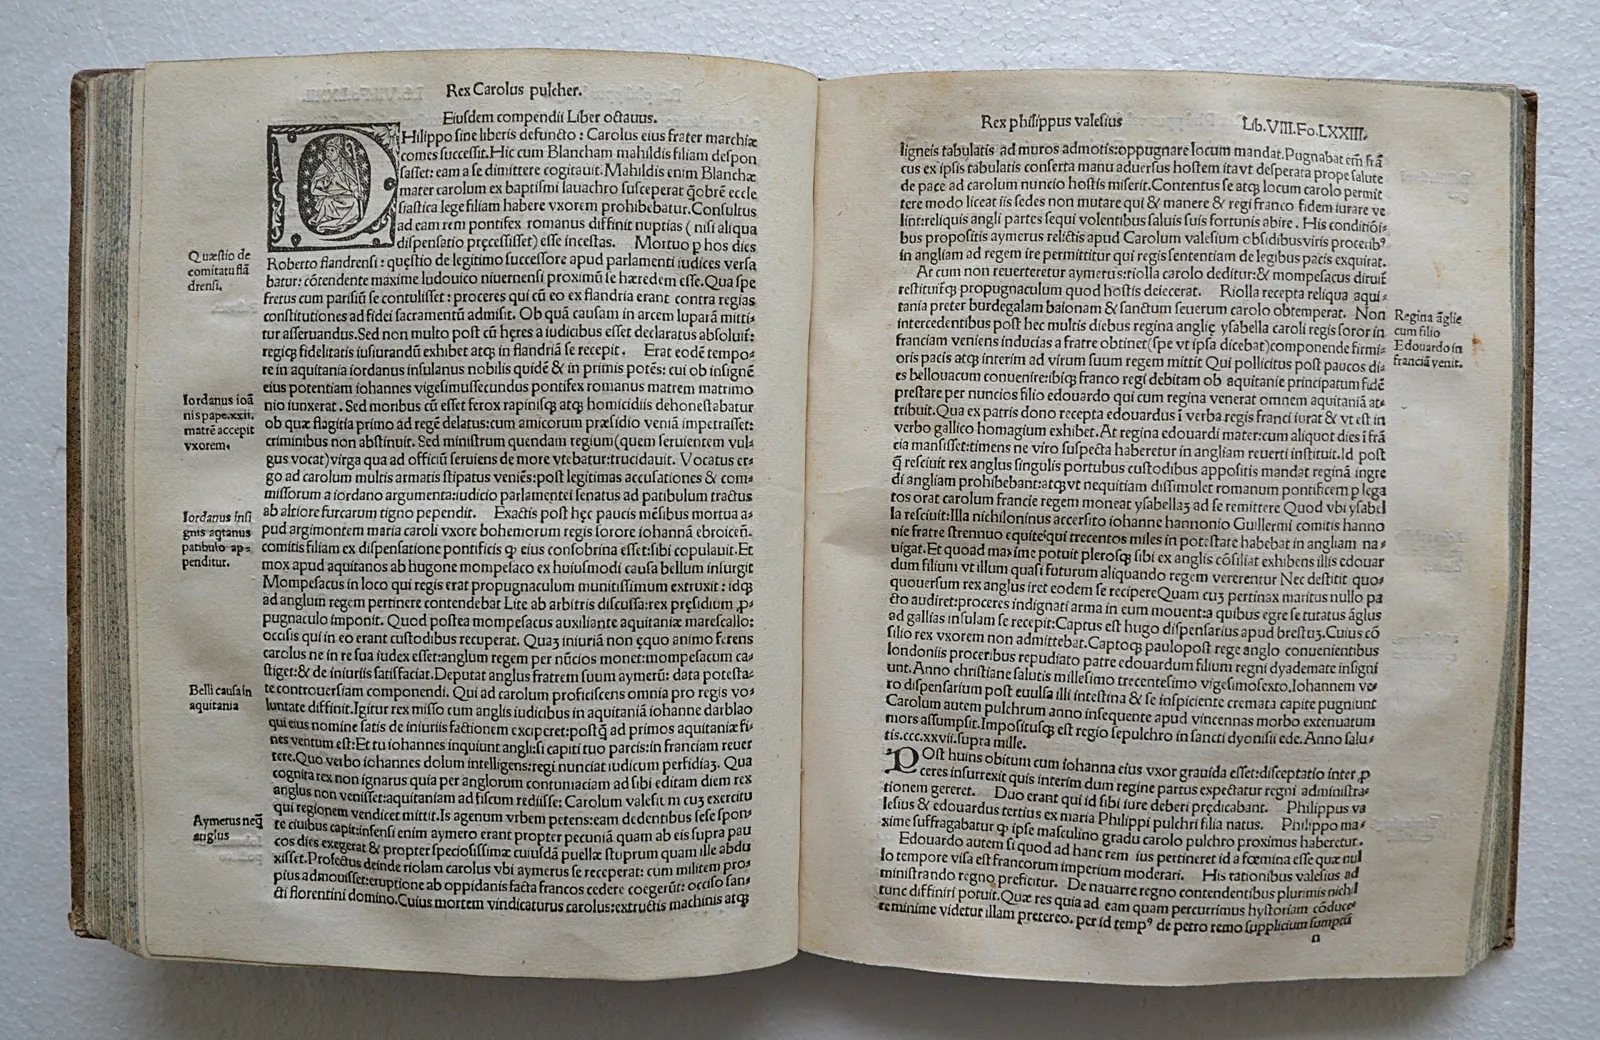 Rex Carolus pulcher.
Eiusdem compendii Liber octauus.
Hilippo sine liberis defuncto : Carolus eius frater marchiæ
comes successit. Hic cum Blancham mahildis filiam despon
sasset: eam a se dimittere cogitauit. Mahildis enim Blanchæ
mater carolum ex baptismi lauachro susceperat q̃obrē eccle
siastica lege filiam habere vxorem prohibebatur. Consultus
ad eam rem pontifex romanus diffinit nuptias ( nisi aliqua
dispensatio pręcessisset) esse incestas. Mortuo p hos dies
Quæstio de
comitatu flā
drensi.
Roberto flandrensi : quęstio de legitimo successore apud parlamenti iudices versa
batur: cōtendente maxime ludouico niuernensi proximū se hæredem esse. Qua spe
fretus cum parisiū se contulisset : proceres qui cū eo ex flandria erant contra regias
constitutiones ad fidei sacramentū admisit. Ob quā causam in arcem luparā mitti⸗
tur asseruandus. Sed non multo post cū hęres a iudicibus esset declaratus absoluit̄:
regiq; fidelitatis iusiurandū exhibet atq; in flandriā se recepit. Erat eodē tempo⸗
re in aquitania iordanus insulanus nobilis quidē & in primis potēs: cui ob insignē
eius potentiam iohannes vigesimussecundus pontifex romanus matrem matrimo
Iordanus ioā
nis pape.xxii.
matrē accepit
vxorem.
nio iunxerat . Sed moribus cū esset ferox rapinisq; atq; homicidiis dehonestabatur
ob quæ flagitia primo ad regē delatus: cum amicorum præsidio veniā impetrasset:
criminibus non abstinuit. Sed ministrum quendam regium (quem seruientem vul⸗
gus vocat) virga qua ad officiū seruiens de more vtebatur: trucidauit. Vocatus er⸗
go ad carolum multis armatis stipatus veniēs: post legitimas accusationes & com⸗
missorum a iordano argumenta: iudicio parlamentei senatus ad patibulum tractus
Iordanus insi
gnis aqtanus
patibulo ap⸗
penditur.
ab altiore furcarum tigno pependit. Exactis post hęc paucis mēsibus mortua a⸗
pud argimontem maria caroli vxore bohemorum regis sorore iohannā ebroicen̄.
comitis filiam ex dispensatione pontificis q eius consobrina esset: sibi copulauit. Et
mox apud aquitanos ab hugone mompesaco ex huiusmodi causa bellum insurgit
Mompesacus in loco qui regis erat propugnaculum munitissimum extruxit : idq;
ad anglum regem pertinere contendebat Lite ab arbitris discussa: rex pręsidium ,p⸗
pugnaculo imponit. Quod postea mompesacus auxiliante aquitaniæ marescallo:
occisis qui in eo erant custodibus recuperat. Quaʒ iniuriā non ęquo animo ferens
carolus ne in re sua iudex esset: anglum regem per nūcios monet: mompesacum ca⸗
stiget: & de iniuriis satisfaciat. Deputat anglus fratrem suum aymerū: data potesta⸗
Belli causa in
aquitania
te controuersiam componendi. Qui ad carolum proficiscens omnia pro regis vo⸗
luntate diffinit. Igitur rex misso cum anglis iudicibus in aquitaniā iohanne darblao
qui eius nomine satis de iniuriis factionem exciperet: postq̃ ad primos aquitaniæ fi⸗
nes ventum est: Et tu iohannes inquiunt angli: si capiti tuo parcis: in franciam reuer
tere. Quo verbo iohannes dolum intelligens: regi nunciat iudicum perfidiaʒ. Qua
cognita rex non ignarus quia per anglorum contumaciam ad sibi editam diem rex
anglus non venisset: aquitaniam ad fiscum rediisse: Carolum valesiū cuʒ exercitu
qui regionem vendicet mittit. Is agenum vrbem petens: eam dedentibus sese spon⸗
Aymerus neq̃
anglus
te ciuibus capit: infensi enim aymero erant propter pecuniā quam ab eis supra pau
cos dies exegerat & propter speciosissimæ cuiusdā puellæ stuprum quam ille abdu
xisset. Profectus deinde riolam carolus vbi aymerus se receperat: cum militem pro⸗
pius admouisset: eruptione ab oppidanis facta francos cedere coegerūt: occiso san⸗
cti florentini domino. Cuius mortem vindicaturus carolus: extructis machinis atq;
Rex philippus valesius
Lib.VIII.Fo.LXXIII.
ligneis tabulatis ad muros admotis: oppugnare locum mandat. Pugnabat em̄ frā
cus ex ipsis tabulatis conserta manu aduersus hostem itavt desperata prope salute
de pace ad carolum nuncio hostis miserit. Contentus se atq; locum carolo permit
tere modo liceat iis sedes non mutare qui & manere & regi franco fidem iurare ve
lint: reliquis angli partes sequi volentibus saluis suis fortunis abire . His conditiōi⸗
bus propositis aymerus relictis apud Carolum valesium obsidibus viris procerib⁹
in angliam ad regem ire permittitur qui regis sententiam de legibus pacis exquirat.
At cum non reuerteretur aymerus: riolla carolo deditur: & mompesacus diruit̄
restituit̄q; propugnaculum quod hostis deiecerat. Riolla recepta reliqua aqui⸗
tania preter burdegalam baionam & sanctum seuerum carolo obtemperat. Non
Regina āglie
cum filio
Edouardo in
franciā venit.
intercedentibus post hec multis diebus regina anglię ysabella caroli regis soror in
franciam veniens inducias a fratre obtinet (spe vt ipsa dicebat) componende firmi⸗
oris pacis atq; interim ad virum suum regem mittit Qui pollicitus post paucos di⸗
es bellouacum conuenire: ibiq; franco regi debitam ob aquitanie principatum fidē
prestare per nuncios filio edouardo qui cum regina venerat omnem aquitaniā at⸗
tribuit. Qua ex patris dono recepta edouardus ī verba regis franci iurat & vt est in
verbo gallico homagium exhibet. At regina edouardi mater: cum aliquot dies ī frā
cia mansisset: timens ne viro suspecta haberetur in angliam reuerti instituit. Id post
q̃ resciuit rex anglus singulis portubus custodibus appositis mandat reginā ingre
di angliam prohibeant: atq; vt nequitiam dissimulet romanum pontificem p lega
tos orat carolum francie regem moneat ysabellaʒ ad se remittere Quod vbi ysabel
la resciuit: Illa nichilominus accersito iohanne hannonio Guillermi comitis hanno
nie fratre strennuo equite: qui trecentos miles in potestate habebat in angliam na⸗
uigat. Et quoad maxime potuit plerosq; sibi ex anglis cōsiliat exhibens illis edouar
dum filium vt illum quasi futurum aliquando regem vererentur Nec destitit quo⸗
quouersum rex anglus iret eodem se recipere Quam cuʒ pertinax maritus nullo pa
cto audiret: proceres indignati arma in eum mouent: a quibus egre se tutatus āglus
ad gallias insulam se recepit: Captus est hugo dispensarius apud brestuʒ. Cuius cō
silio rex vxorem non admittebat. Captoq; paulopost rege anglo conuenientibus
londoniis proceribus repudiato patre edouardum filium regni dyademate insigni
unt. Anno christiane salutis millesimo trecentesimo vigesimosexto. Iohannem ve⸗
ro dispensarium post euulsa illi intestina & se inspiciente cremata capite pugniunt
Carolum autem pulchrum anno insequente apud vincennas morbo extenuatum
mors assumpsit. Impositusq; est regio sepulchro in sancti dyonisii ede. Anno salu⸗
tis.ccc.xxvii. supra mille.
POst huius obitum cum iohanna eius vxor grauida esset: disceptatio inter ,p
ceres insurrexit quis interim dum regine partus expectatur regni administra⸗
tionem gereret. Duo erant qui id sibi iure deberi prędicabant. Philippus va
lesius & edouardus tertius ex maria Philippi pulchri filia natus. Philippo ma⸗
xime suffragabatur q ipse masculino gradu carolo pulchro proximus haberetur.
Edouardo autem si quod ad hanc rem ius pertineret id a fœmina esse quæ nul
lo tempore visa est francorum imperium moderari. His rationibus valesius ad
ministrando regno preficitur. De nauarre regno contendentibus plurimis nichil
tunc diffiniri potuit. Quæ res quia ad eam quam percurrimus hystoriam cōduce⸗
re minime videtur illam pretereo. per id temp⁹ de petro remo supplicium sumptū
n